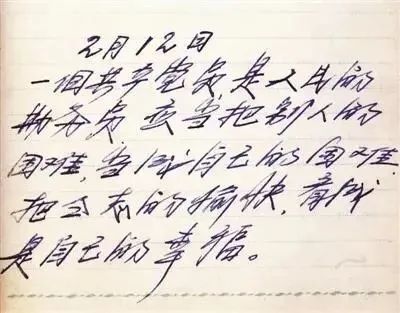 2月12日
一個共产党员是人民的
勤务员应当把别人的
困难,当成自己的困难.
把同志的愉快,看成
是自己的幸福。